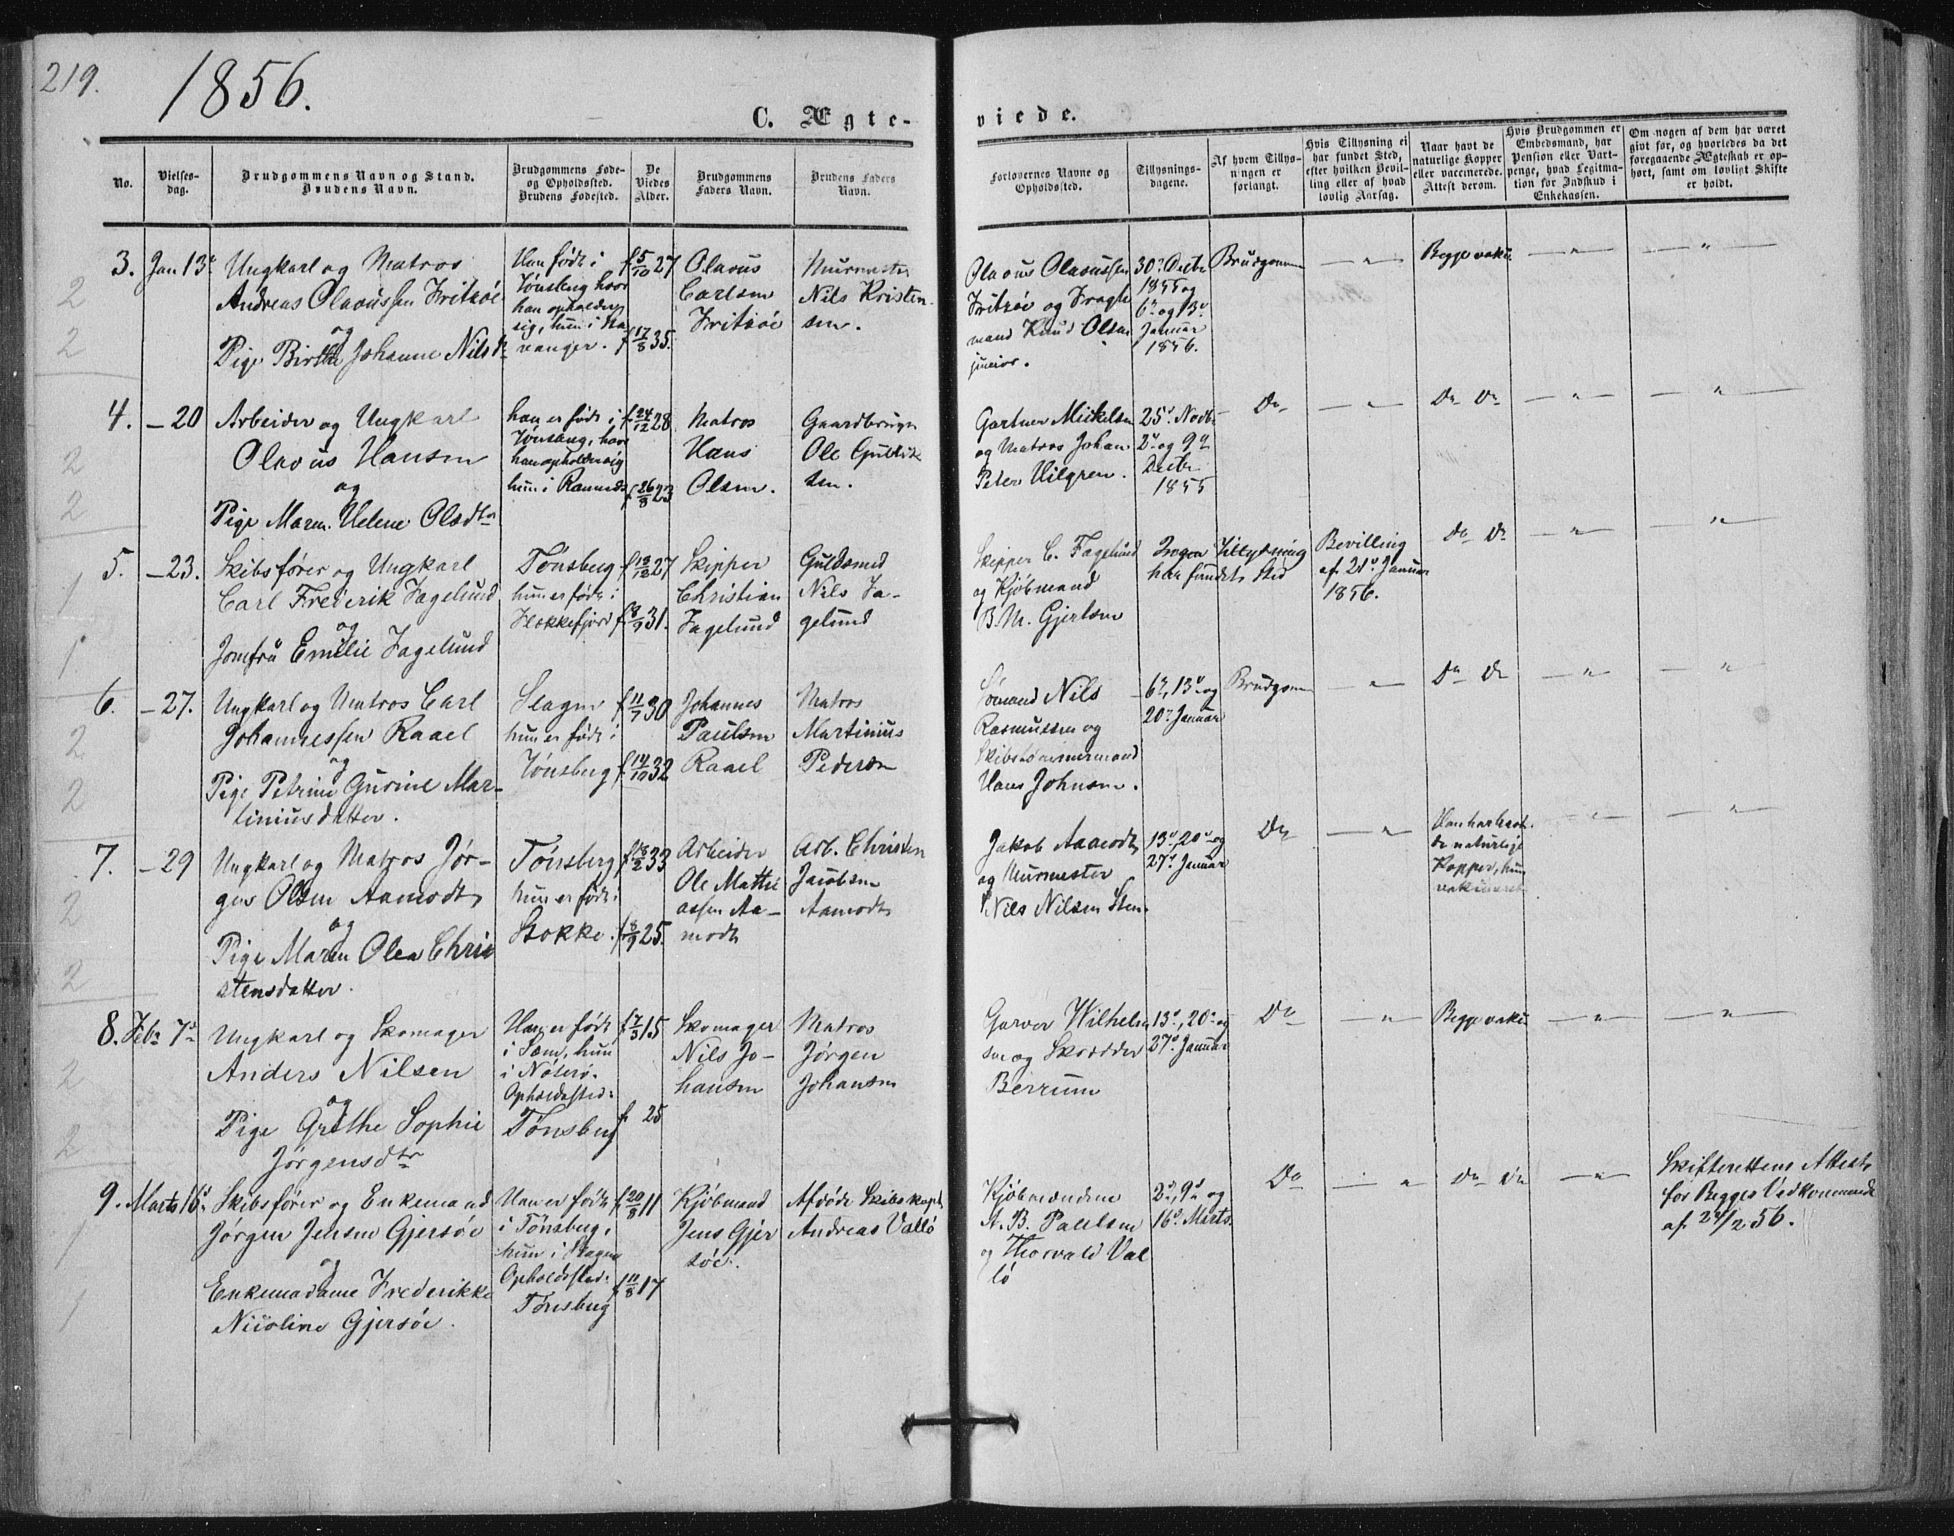 219.
1856.
C. Ægte-
viede.
No.
Vielses-
dag.
Brudgommens Navn og Stand.
Brudens Navn.
Brudgommens Føde-
og Opholdssted.
Brudens Fødested.
De
Viedes
Alder.
Brudgommens
Faders Navn.
Brudens Faders
Navn.
Forlovernes Navne og
Opholdssted.
Tillysnings-
dagene.
Af hvem Tillys-
ningen er
forlangt.
Hvis Tillysning ei
har fundet Sted,
efter hvilken Bevil-
ling eller af hvad
lovlig Aarsag.
Naar havt de
naturlige Kopper
eller vaccinerede.
Attest derom.
Hvis Brudgommen er
Embedsmand, har
Pension eller Vart-
penge, hvad Legitima-
tion for Indskud i
Enkekassen.
Om nogen af dem har været
givt før, og hvorledes da det
foregaaende Ægteskab er op-
hørt, samt om lovligt Skifte
er holdt.
3. Jan 13d
Ungkarl og Matros
Andreas Olavussen Fritsøe
og
Pige Birthe Johanne Nilsdr
Han født i
Tønsberg hvor
han opholder
sig, hun i Sta
vanger.
f 5/10 27
f 17/8 35.
Olavus
Carlsen
Fritsøe
Murmester
Nils Kristen-
sen.
Olavus Olavussen
Fritsøe og Fragte
mand Knud Olsen
junior.
30e Decbr
1855 og
6e og 13e
Januar
1856.
Brudgom
— „ —
Begge vakc
— „ —
— „ —
4. — 20
Arbeider og Ungkarl
Olavus Hansen
og
Pige Maren Helene Olsdtr
han er født i
Tønsberg, hvor
han opholder sig
hun i Ramnæs
f 24/12 28
f 26/8 23
Matros
Hans
Olsen.
Gaardbruger
Ole Gulliks
sen.
Gartner Mickelsen
og Matros Johan
Peter Hilgren.
25e Novbr
2e og 9e
Decbr
1855
Do
— „ —
Do Do
— „ —
— „ —
5. — 23.
Skibsfører og Ungkarl
Carl Frederik Fagelund
og
Jomfru Emilie Fagelund
Tønsberg
hun er født i
Flekkefjord
f 18/12 27
f 9/9 31.
Skipper
Christian
Fagelund
Guldsmed
Nils Fa-
gelund
Skipper C. Fagelund
og Kjøbmand
B. M. Gjertsen
Ingen Tillysning
har fundet sted
Bevilling
af 21e Januar
1856.
Do Do
— „ —
— „ —
6. — 27.
Ungkarl og Matros Carl
Johannessen Raael
og
Pige Petrine Gurine Mar-
tiniusdatter.
Slagen
hun er født i
Tønsberg
f 11/7 30
f 14/10 32
Johannes
Paulsen
Raael
Matros
Martinius
Pedersen
Sømand Nils
Rasmussen og
Skibstømmermand
Hans Johnsen.
6e, 13e og
20e Januar
Brudgom
— „ —
Do Do
— „ —
— „ —
7. — 29
Ungkarl og Matros Jør-
gen Olsen Aamodt
og
Pige Maren Olea Chri
stensdatter.
Tønsberg
hun er født i
Stokke.
f 18/2 33
f 8/9 25.
Arbeider
Ole Mathi
assen Aa-
modt
Arb. Christen
Jacobsen
Aamodt
Jakob Aamodt
og Murmester
Nils Nilsen Sten
13e, 20e og
27e Januar
Do
— „ —
Han har havt
de naturlige
Kopper, hun
vakcineret
— „ —
— „ —
8. Febr 7e
Ungkarl og Skomager
Anders Nilsen
og
Pige Grethe Sophie
Jørgensdtr
Han er født
i Sem, hun
i Nøterø.
Opholdssted:
Tønsberg
f 7/3 15
f 25
Skomager
Nils Jo-
hansen
Matros
Jørgen
Johansen
Garver Wilhelm
sen og Skrædder
Berrum
13e, 20e og
27e Januar
Do
— „ —
Begge vakc
— „ —
— „ —
9. Marts 16e
Skibsfører og Enkemand
Jørgen Jensen Gjersøe
og
Enkemadame Frederikke
Nicoline Gjersøe.
Han er født
i Tønsberg,
hun i Slagen
Opholdssted:
Tønsberg
f 20/8 11
f 11/8 17
Kjøbmand
Jens Gjer
søe.
Afdøde Skibskapt
Andreas Vallø
Kjøbmændene
A. B. Paulsen
og Thorvald Val
lø
2e, 9e og
16e Marts.
Do
— „
Do Do
— „ —
Skifterettens Attest
for Begges Vedkommende
af 24/2 56.
2
2
2
2
1
1
2
2
2
2
2
2
1
1